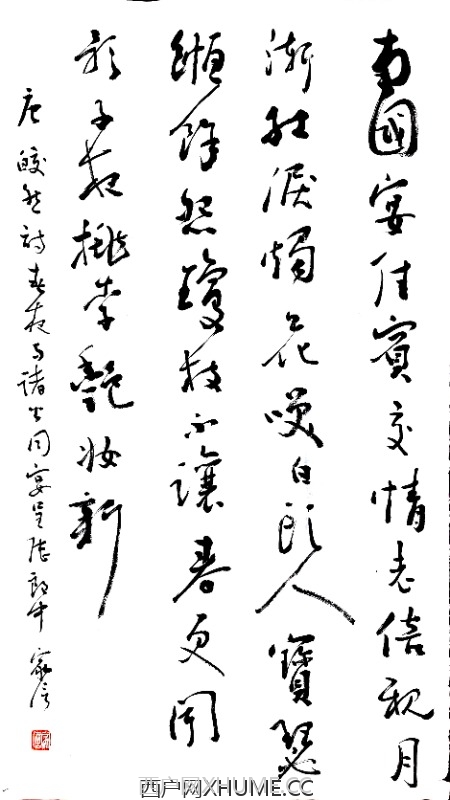 南國宴佳賓交情老倍親月
漸紅淚燭花咲白頭人寶瑟
緪餘怨瓊枝不讓春更聞
歌子夜桃李艷妝新
唐皎然詩春夜与諸公同宴呈陸郎中
西户网XHUME.CC